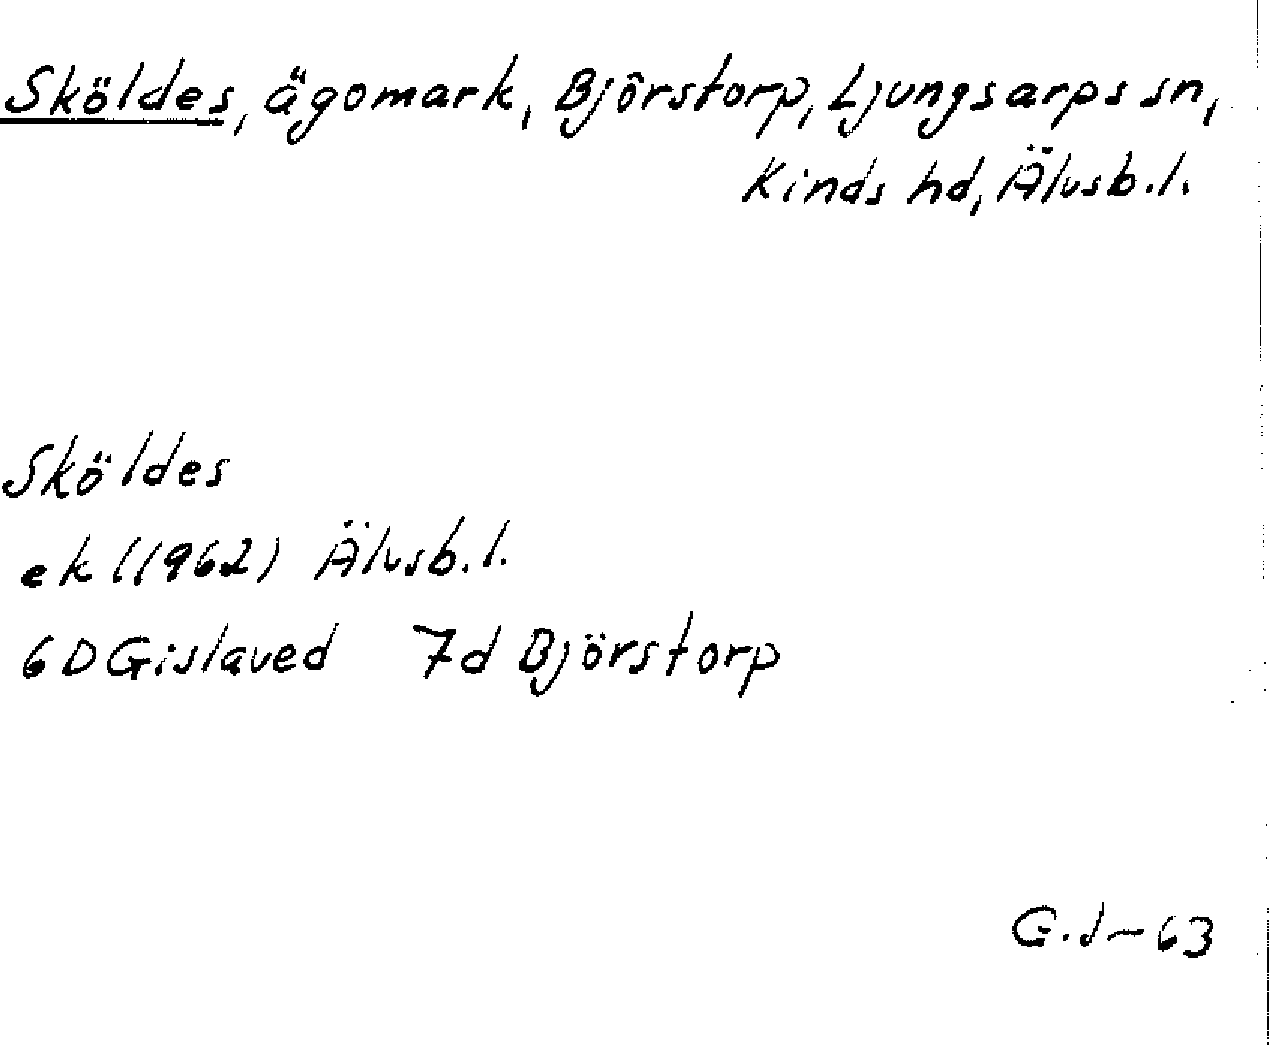 Sköldes, ägomark, Björstorp, Ljungsarps sn,
Kinds hd, Älvsb.l.
Sköldes
ek (1962) Älvsb.l.
6D Gislaved 7d Björstorp
G.J-63